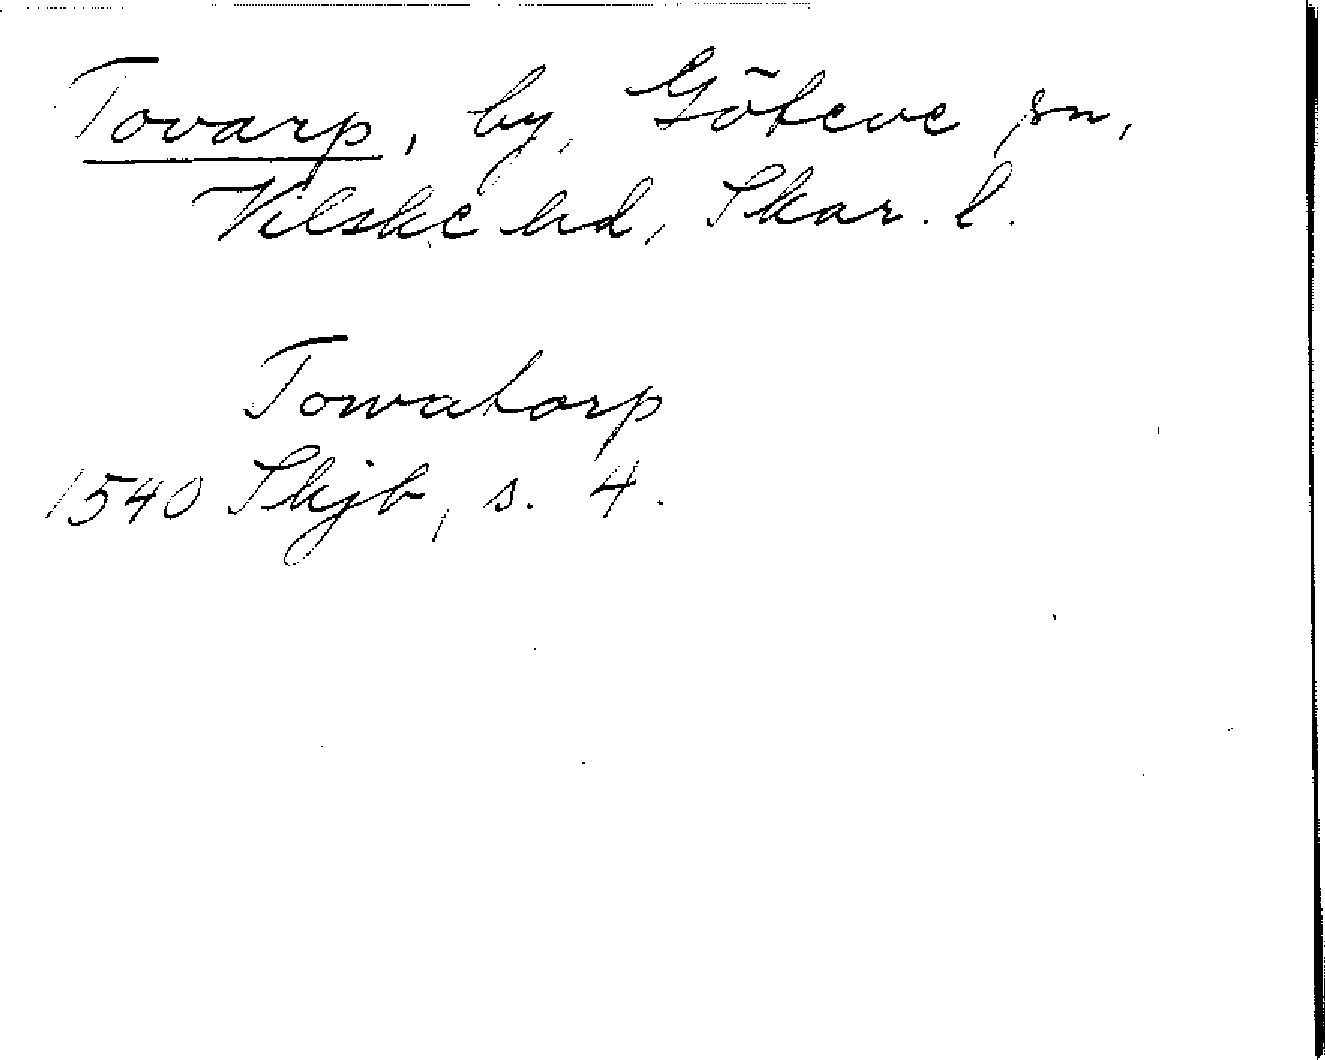 Tovarp, by, Göteve sn,
Vilske hd, Skar. l.
Towatorp
1540 Skjb, s. 4.